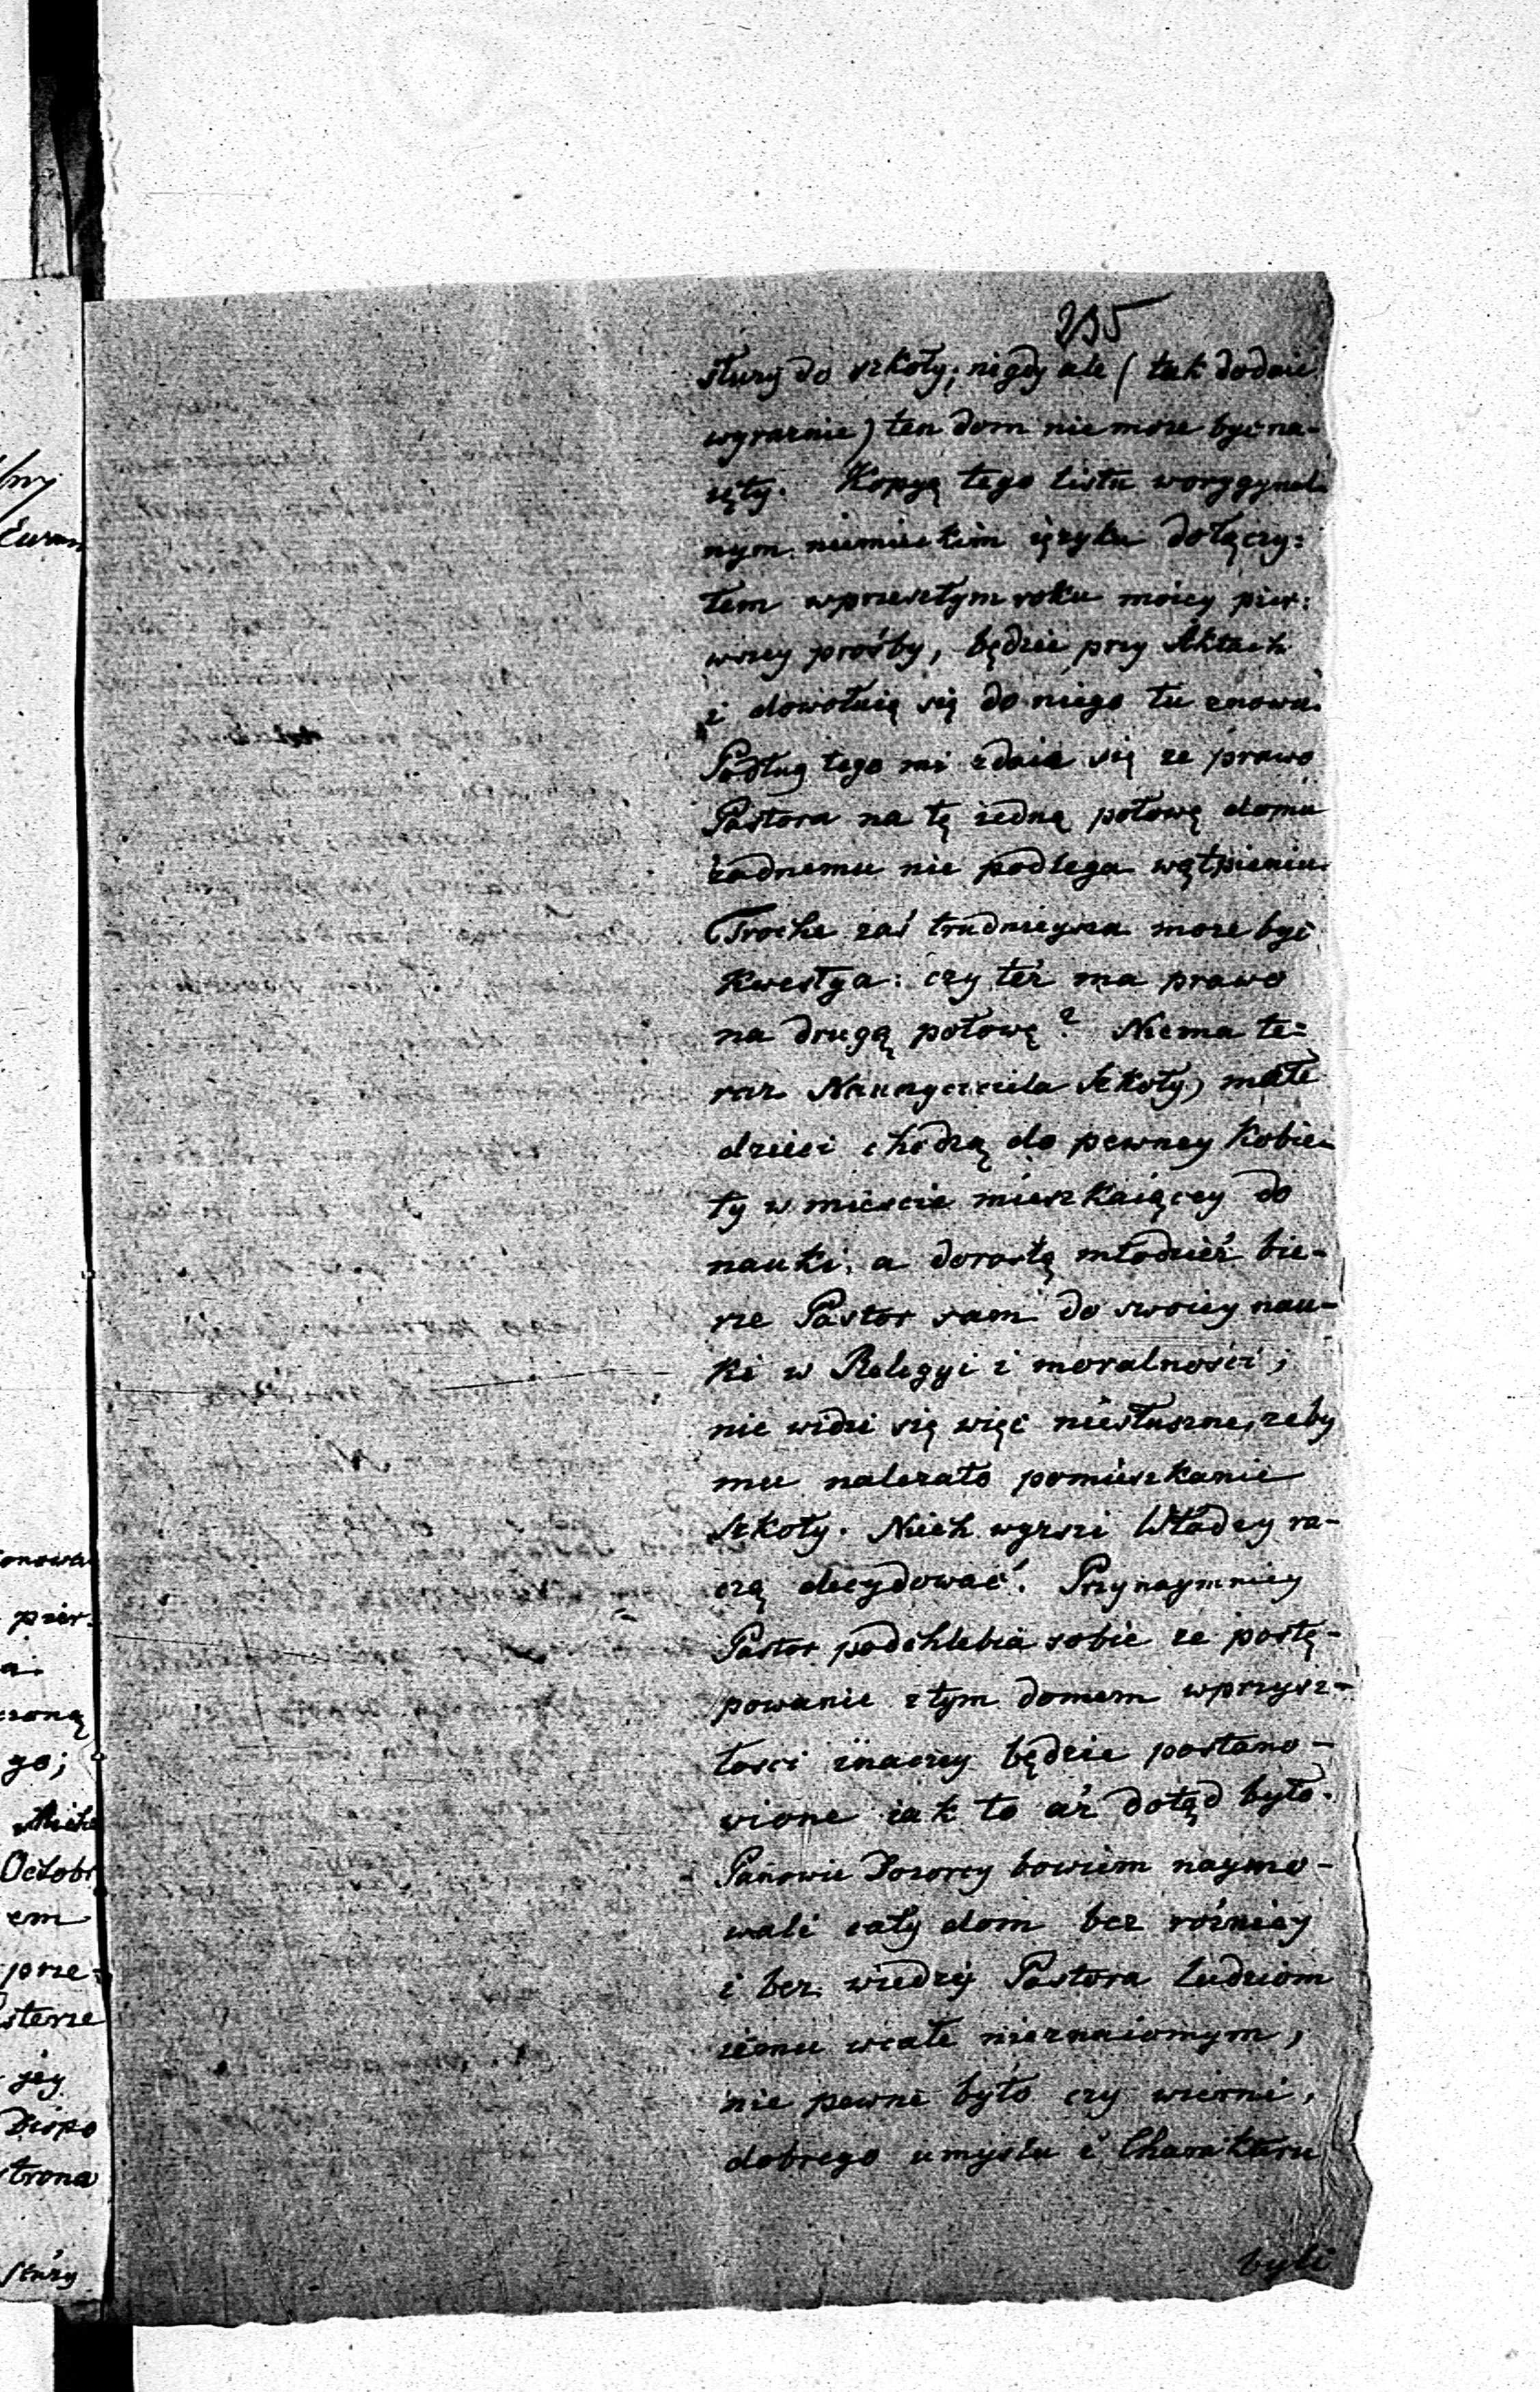 235
słuzy do szkoły; nigdy ale (tak dodaie
wyraznie) ten dom nie moze być na-
ięty. Kopyą tego listu w orygynal-
nym niemieckim ięzyku dołączy:
łem w przeszłym roku moiey pier:
wszey prośby, będzie przy Aktach
i dowołuię się do niego tu znowu.
Podług tego mi zdaie się ze prawo
Pastora na tę iedną połowę domu
żadnemu nie podlega wątpieniu.
Troche zaś trudnieysza moze być
kwestya: czy też ma prawo
na drugą połowę? Niema te=
raz Nauczyciela Szkoły, małe
dzieci chodzą do pewney kobie-
ty w miescie mieszkaiącey do
nauki, a dorosłą młodzież bie-
rze Pastor sam do swoiey nau-
ki w Religyi i moralności;
nie widzi się więc niesłuszne, zeby
mu nalezało pomieszkanie
Szkoły. Niech wyzsi Władcy ra-
czą decydować. Przynaymniey
Pastor podchlebia sobie ze postę-
powanie z tym domem w przysz-
łosci inaczey będzie postano-
wione iak to aż dotąd było.
Panowie Dozorcy bowiem naymo-
wali cały dom bez rożnicy
i bez wiedzy Pastora ludziom
iemu wcale nieznaiomym,
nie pewne było czy wierni,
dobrego umysłu i Charakteru
byli
Octobr
em
prze-
jey
strona
słuzy